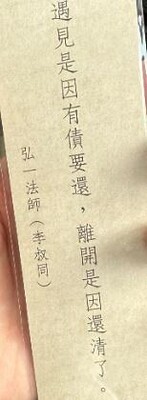 遇見是因有債要還，離開是因還清了。
弘一法師（李叔同）